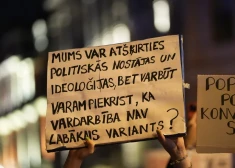 MUMS VAR ATŠĶIRTIES
POLITISKĀS NOSTĀJAS UN
IDEOLOĢIJAS, BET VARBŪT
VARAM PIEKRIST, KA
VARDARBĪBA NAV
LABĀKAIS VARIANTS?
POP
PO
KONV
S